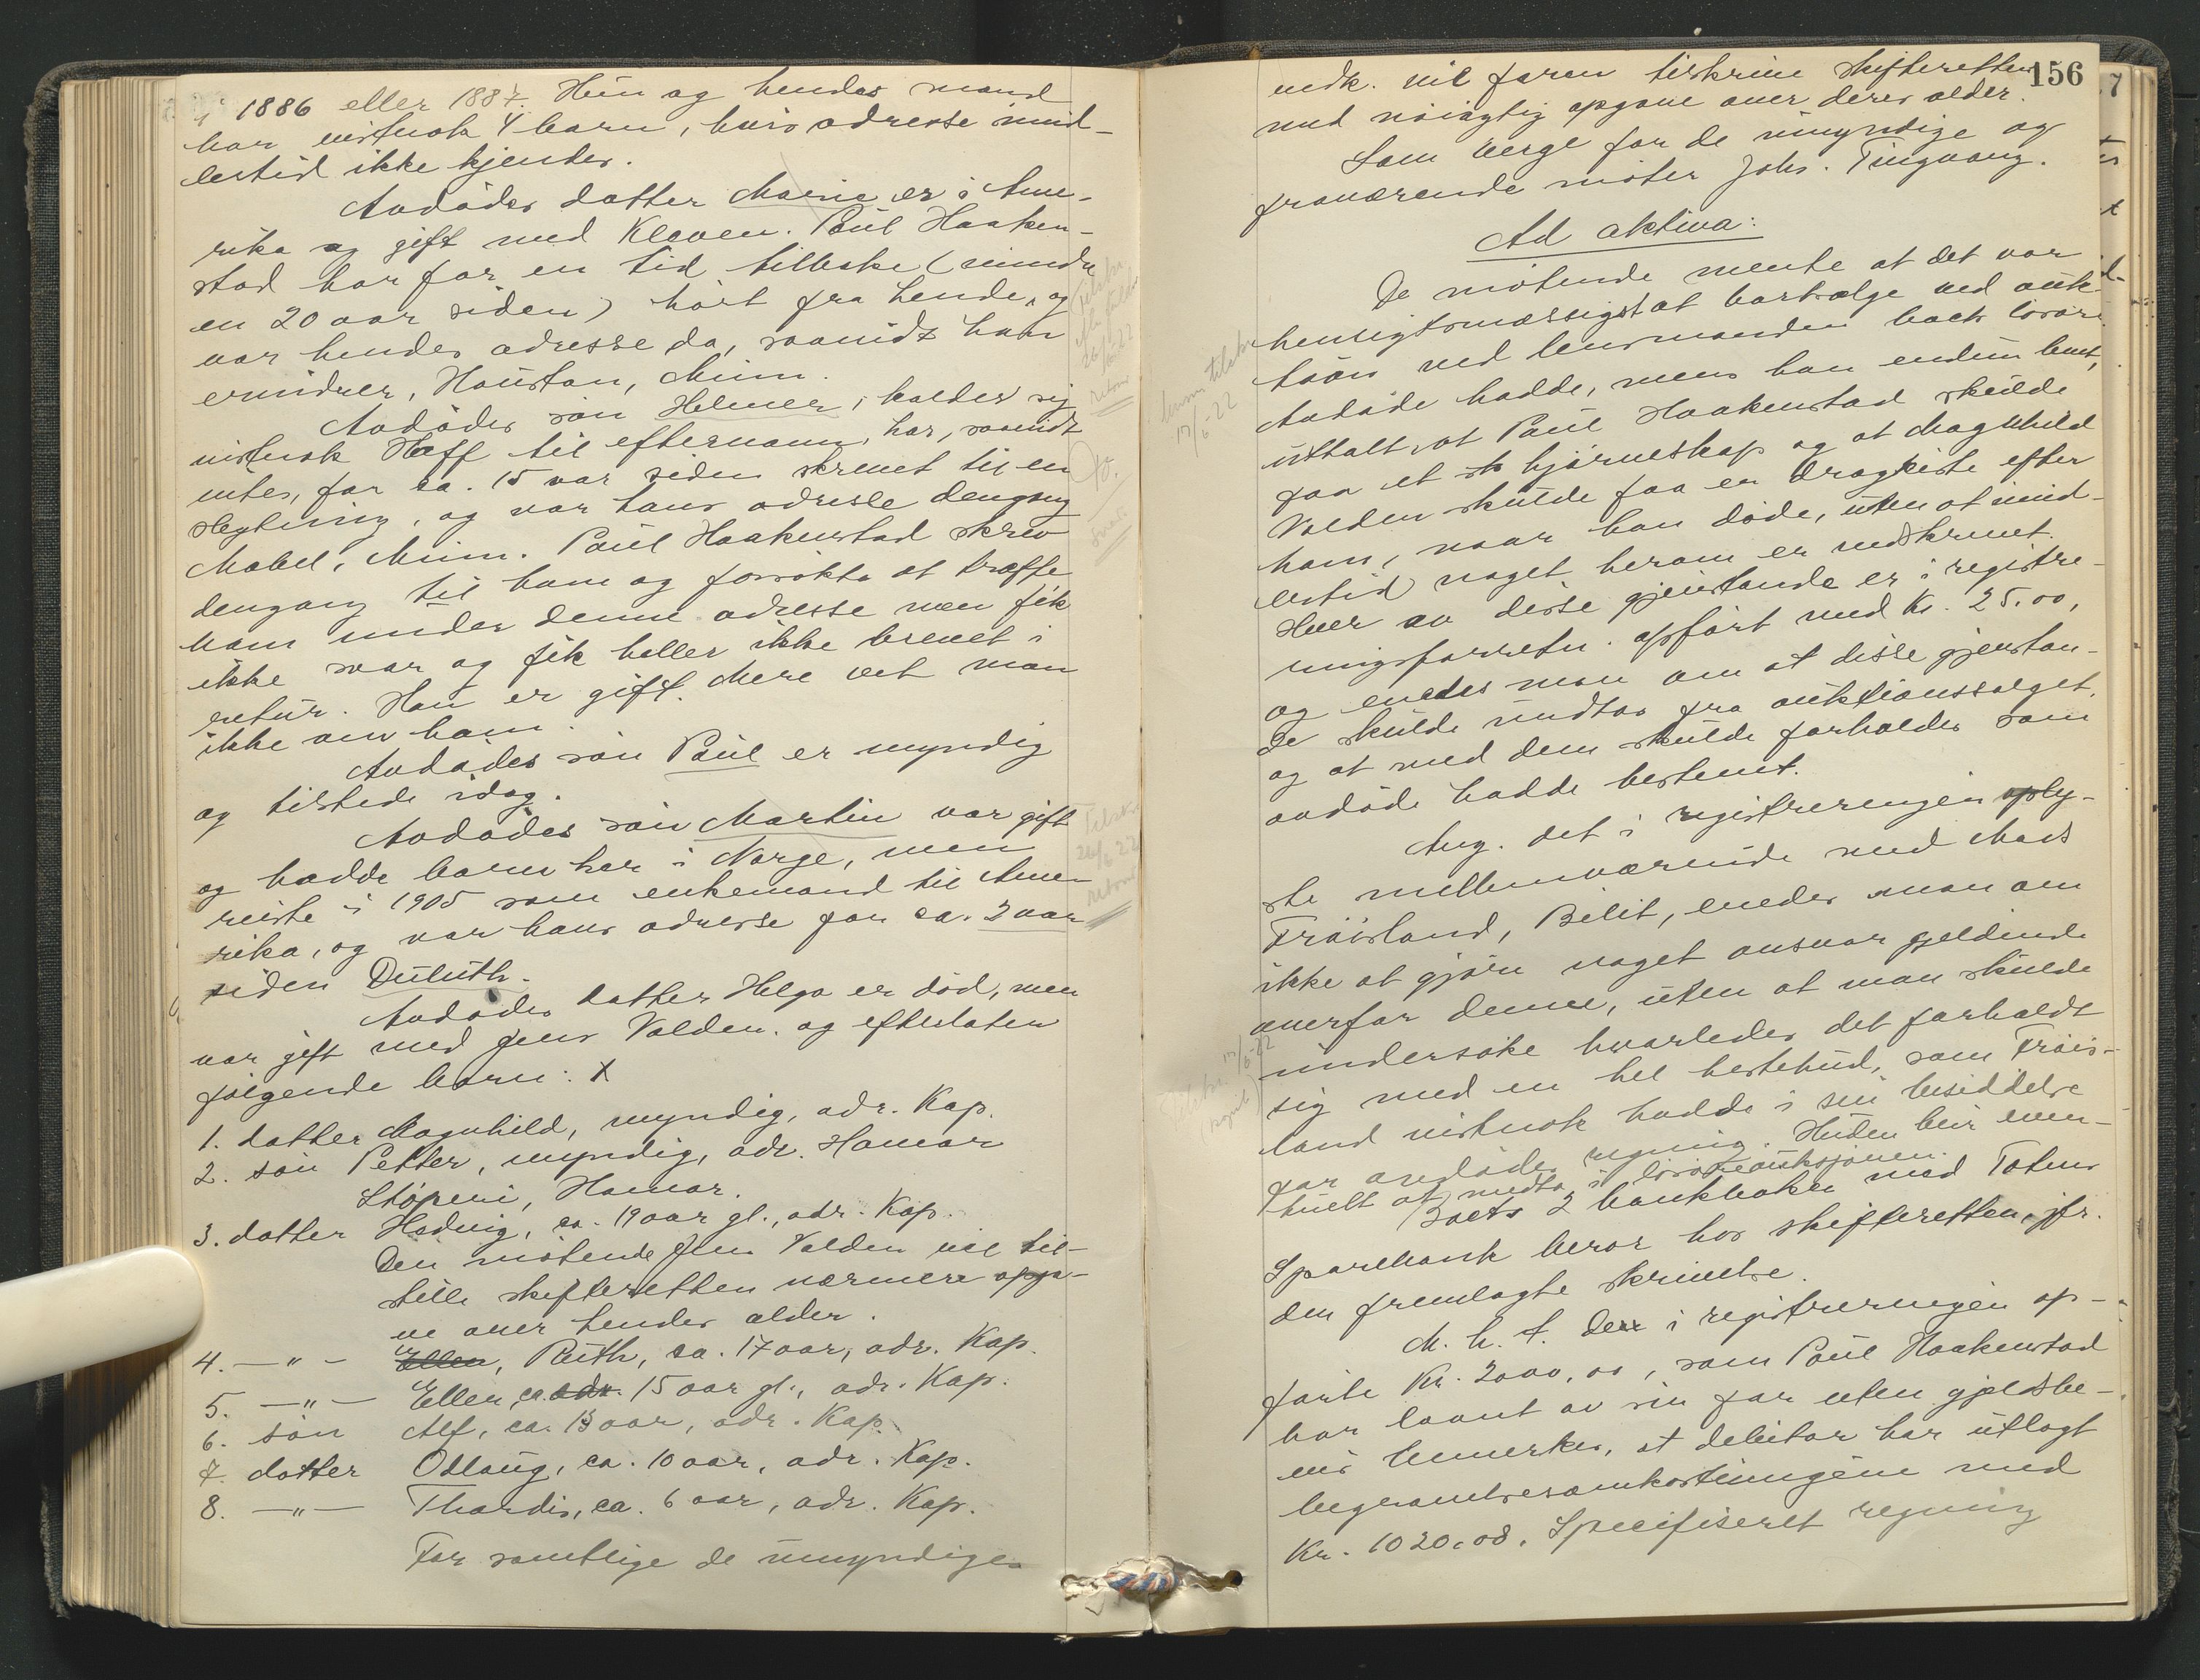 i 1886 eller 1887. Hun og hendes mand
har vistnok 4 barn, hvis adresse imid-
lertid ikke kjendes.
Avdødes datter Marie er i Ame-
rika og gift med Kleven. Paul Haaken-
stad har for en tid tilbake (mindst
en 20 aar siden) hørt fra hende, og
var hendes adresse da, saavidt han
erindrer, Houston, Minn.
Avdødes søn Helmer, kalder sig
vistnok Hoff til efternavn, har, saavidt
vites, for ca. 15 aar siden skrevet til en
slegtning, og var hans adresse dengang
Mabel, Minn. Paul Haakenstad skrev
dengang til ham og forsøkte at træffe
ham under denne adresse men fik
ikke svar og fik heller ikke brevet i
retur. Han er gift. Mere vet man
ikke om ham.
Avdødes søn Paul er myndig
og tilstede idag.
Avdødes søn Martin var gift
og hadde barn her i Norge, men
reiste i 1905 som enkemand til Ame-
rika, og var hans adresse for ca. 2 aar
siden Duluth.
Avdødes datter Helga er død, men
var gift med Jens Volden og efterlaten
følgende barn:
1. datter Magnhild, myndig, adr. Kap.
2. søn Petter, myndig, adr. Hamar
Støperi, Hamar.
3. datter Hedvig, ca. 19 aar gl., adr. Kap.
Den møtende Jens Volden vil til-
stille skifteretten nærmere opga-
ve over hendes alder.
4. —"— Ellen, Ruth, ca. 17 aar, adr. Kap.
5. —"— Ellen, ca. adr. 15 aar gl., adr. Kap.
6. søn Alf, ca. 13 aar, adr. Kap.
7. datter Odlaug, ca. 10 aar, adr. Kap.
8. —"— Thordis, ca. 6 aar, adr. Kap.
For samtlige de umyndiges
156
vedk. vil faren tilskrive skifteretten
med nøiagtig opgave over deres alder.
Som verge for de umyndige og
fraværende møter Johs. Tingvang.
Ad aktiva:
De møtende mente at det var
hensigtsmæssigst at bortsælge ved auk-
tion ved lensmanden boets løsøre.
Avdøde hadde, mens han endnu levet,
uttalt at Paul Haakenstad skulde
faa et hjørneskap og at Magnhild
Volden skulde faa en dragkiste efter
ham, naar han døde, uten at imid-
lertid noget herom er nedskrevet.
Hver av disse gjenstande er i registre-
ringsforretn. opført med Kr. 25.00,
og enedes man om at disse gjenstan-
de skulde undtas fra auktionssalget,
og at med dem skulde forholdes som
avdøde hadde bestemt.
Ang. det i registreringen oply-
ste mellemværende med Mads
Frøisland, Bilit, enedes man om
ikke at gjøre noget ansvar gjeldende
overfor denne, uten at man skulde
undersøke hvorledes det forholdt
sig med en hel hestehud, som Frøis-
land vistnok hadde i sin besiddelse
for avdødes regning. Huden blir even-
tuelt at medta i løsøreauksjonen.
Boets 2 bankbøker med Totens
Sparebank beror hos skifteretten, jfr.
den fremlagte skrivelse.
M. h. t. de i registreringen op-
førte Kr. 2000,00, som Paul Haakenstad
har laant av sin far uten gjeldsbe-
vis bemerkes, at debitor har utlagt
begravelsesomkostningene med
Kr. 1020.08. Specifiseret regning